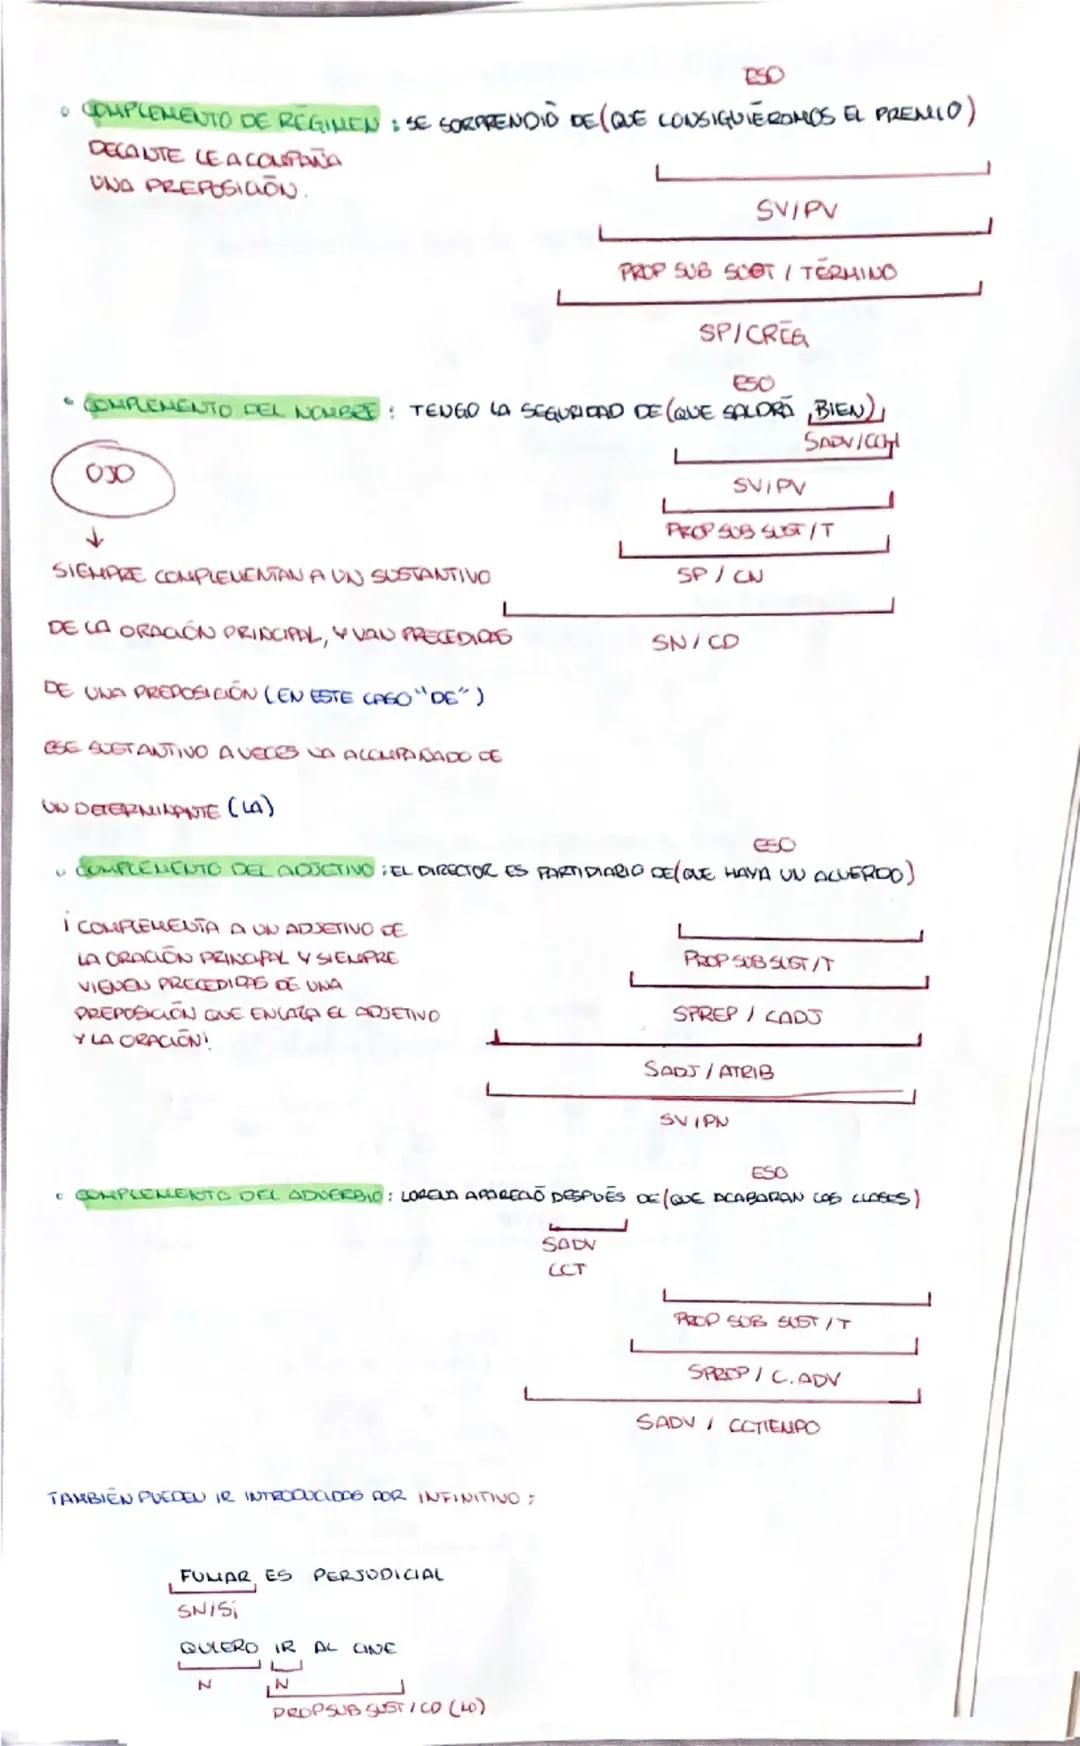 ESO
• COMPLEMENTO DE RÉGIMEN : SE SORPRENDIÓ DE (QUE CONSIGUIÉRAMOS EL PREMIO)
DELANTE LE ACOMPAÑA
UNA PREPOSICIÓN.
SV/PV
PROP SUB SUST / TÉRMINO
SP/CRÉG
ESO
• COMPLEMENTO DEL NOMBRE : TENGO LA SEGURIDAD DE (QUE SALDRÁ BIEN)
SADV/CCM
OJO
SV/PV
PROP SUB SUST / T
SIEMPRE COMPLEMENTAN A UN SUSTANTIVO
SP / CN
DE LA ORACIÓN PRINCIPAL, Y VAN PRECEDIDAS
SN / CD
DE UNA PREPOSICIÓN (EN ESTE CASO "DE")
ESE SUSTANTIVO A VECES VA ACOMPAÑADO DE
UN DETERMINANTE (LA)
ESO
• COMPLEMENTO DEL ADJETIVO : EL DIRECTOR ES PARTIDIARIO DE (QUE HAYA UN ACUERDO)
¡ COMPLEMENTA A UN ADJETIVO DE
LA ORACIÓN PRINCIPAL Y SIEMPRE
PROP SUB SUST / T
VIENEN PRECEDIDAS DE UNA
PREPOSICIÓN QUE ENLAZA EL ADJETIVO
SPREP / CADJ
Y LA ORACIÓN!
SADJ / ATRIB
SV / PN
ESO
• COMPLEMENTO DEL ADVERBIO : LORENA APARECIÓ DESPUÉS DE (QUE ACABARAN LAS CLASES)
SADV
CCT
PROP SUB SUST / T
SPREP / C. ADV
SADV / CCTIEMPO
TAMBIÉN PUEDEN IR INTRODUCIDOS POR INFINITIVO :
FUMAR ES PERJUDICIAL
SN/S
QUIERO IR AL CINE
N N
PROP SUB SUST / CD (LO)